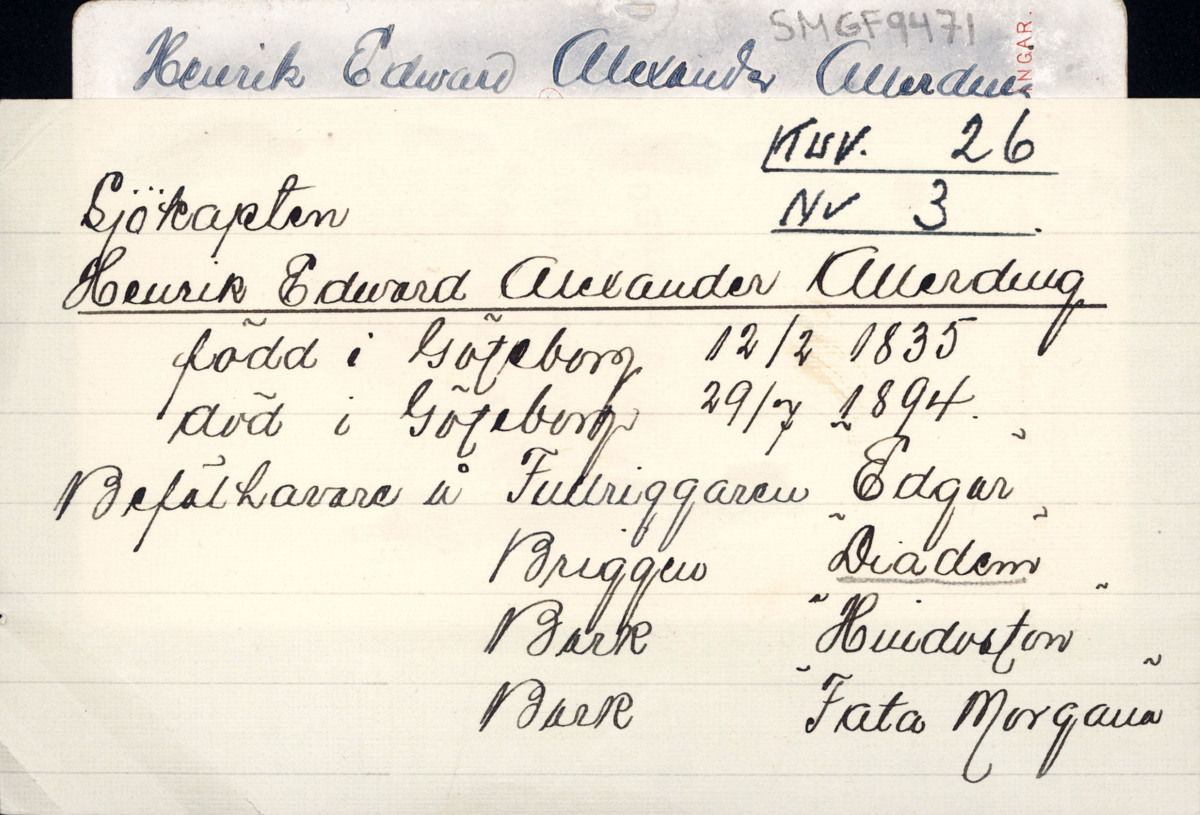 SMGF9471
NGAR.
Henrik Edward Alexander Allerding
Kuv. 26
Nr 3.
Sjökapten
Henrik Edward Alexander Allerding
född i Göteborg 12/2 1835
död i Göteborg 29/7 1894.
Befälhavare å Fullriggaren Edgar"
Briggen "Diadem"
Bark "Hindostan"
Bark "Fata Morgana"